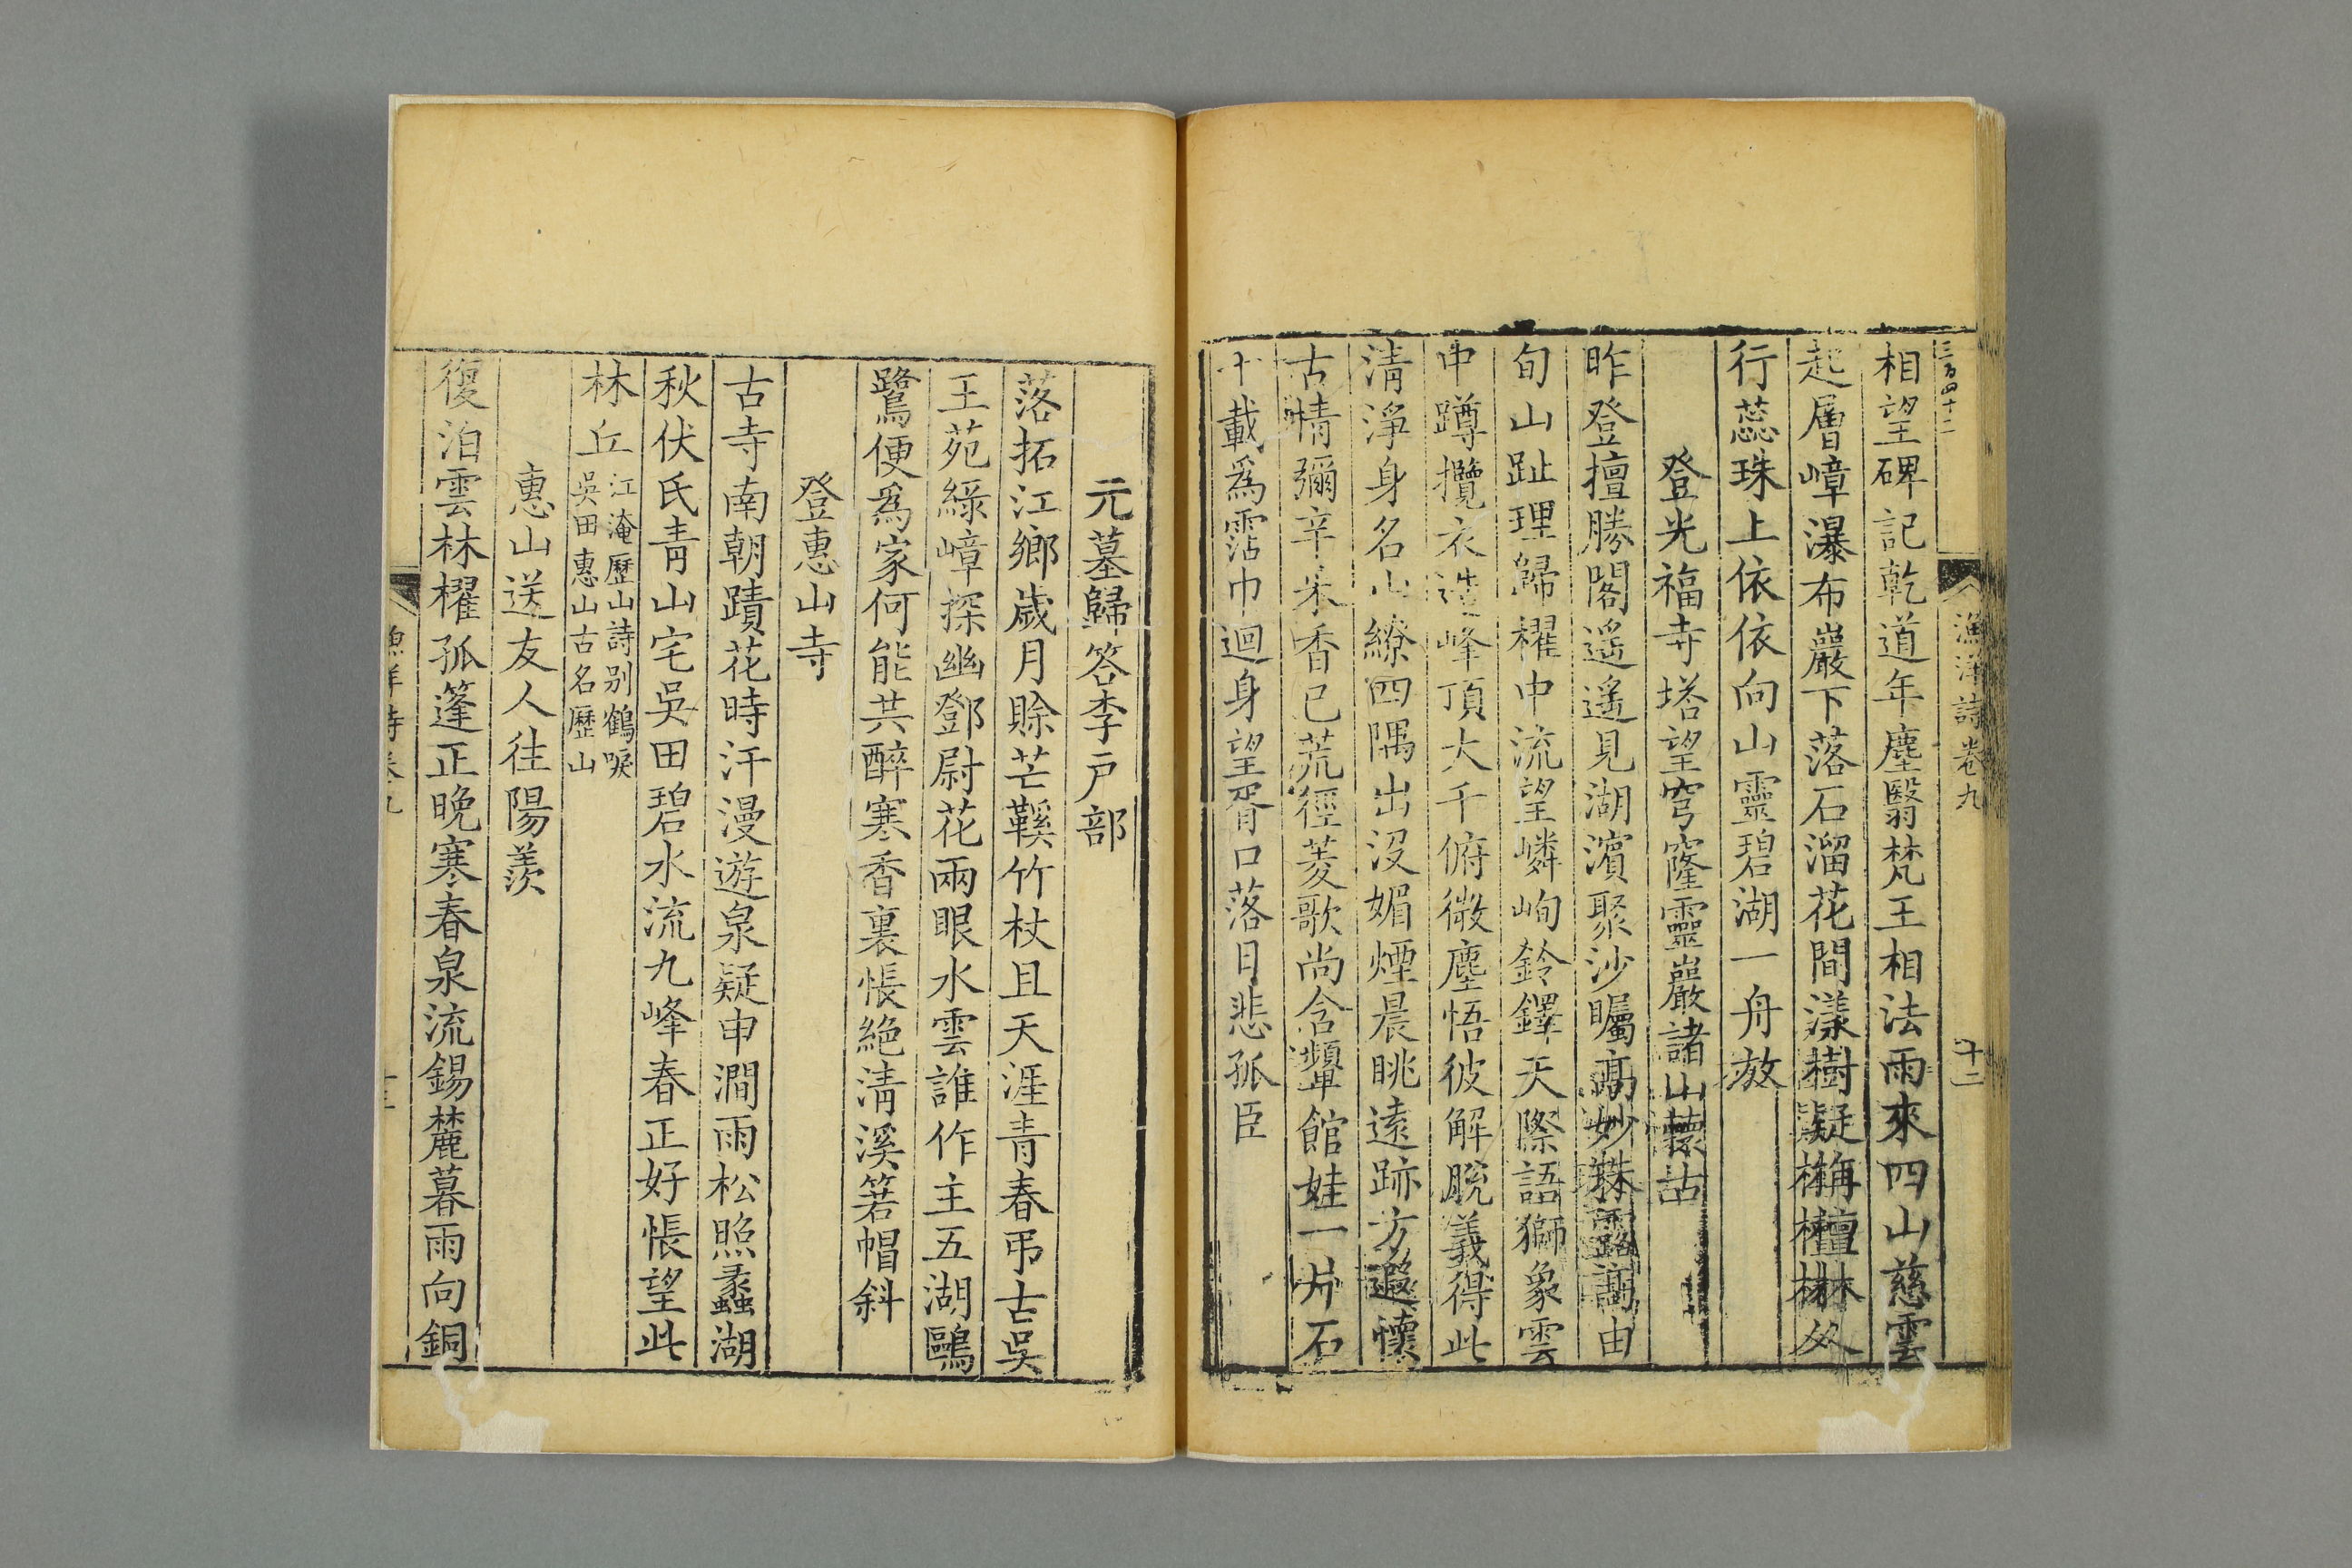 三百四十二
漁洋詩卷九
十二
相望碑記乾道年塵翳梵王相法雨來四山慈雲
起層嶂瀑布巖下落石溜花間漾樹疑栴檀林
行蕊珠上依依向山靈碧湖一舟放
登光福寺塔望穹窿靈巖諸山懷古
昨登擅勝閣遥遥見湖濱聚沙矚高妙
旬山趾理歸櫂中流望嶙峋鈴鐸天際語獅象雲
中蹲攬衣造峰頂大千俯微塵悟彼解脫義得此
清淨身名山繚四隅出没媚煙晨眺遠跡方遐懷
古情彌辛采香已荒徑菱歌尚含顰館娃一片石
十載爲霑巾迴身望胥口落日悲孤臣
元墓歸答李戸部
落拓江鄉歲月賒芒鞵竹杖且天涯青春弔古吳
王苑綠嶂探幽鄧尉花兩眼水雲誰作主五湖鷗
鷺便爲家何能共醉寒香裏悵絶清溪箬帽斜
登惠山寺
古寺南朝蹟花時汗漫遊泉疑申澗雨松照蠡湖
秋伏氏青山宅吳田碧水流九峰春正好悵望此
林丘江淹歷山詩别鶴唳
吳田惠山古名歷山
惠山送友人往陽羨
復泊雲林櫂孤篷正晚寒春泉流錫麓暮雨向銅
漁洋詩卷九
十三